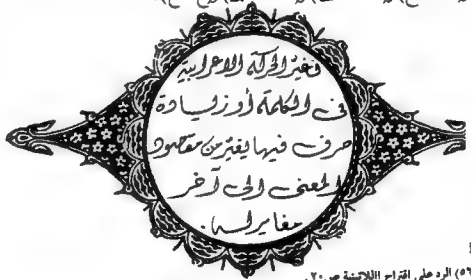 فتغيّر الحركة الاعرابية
فى الكلمة أو زيادة
حرف فيها يغيّر من مقصود
المعنى الى آخر
مغاير له.
٥٦) الرد على اقتراح اللاتينية ص ٢٠.